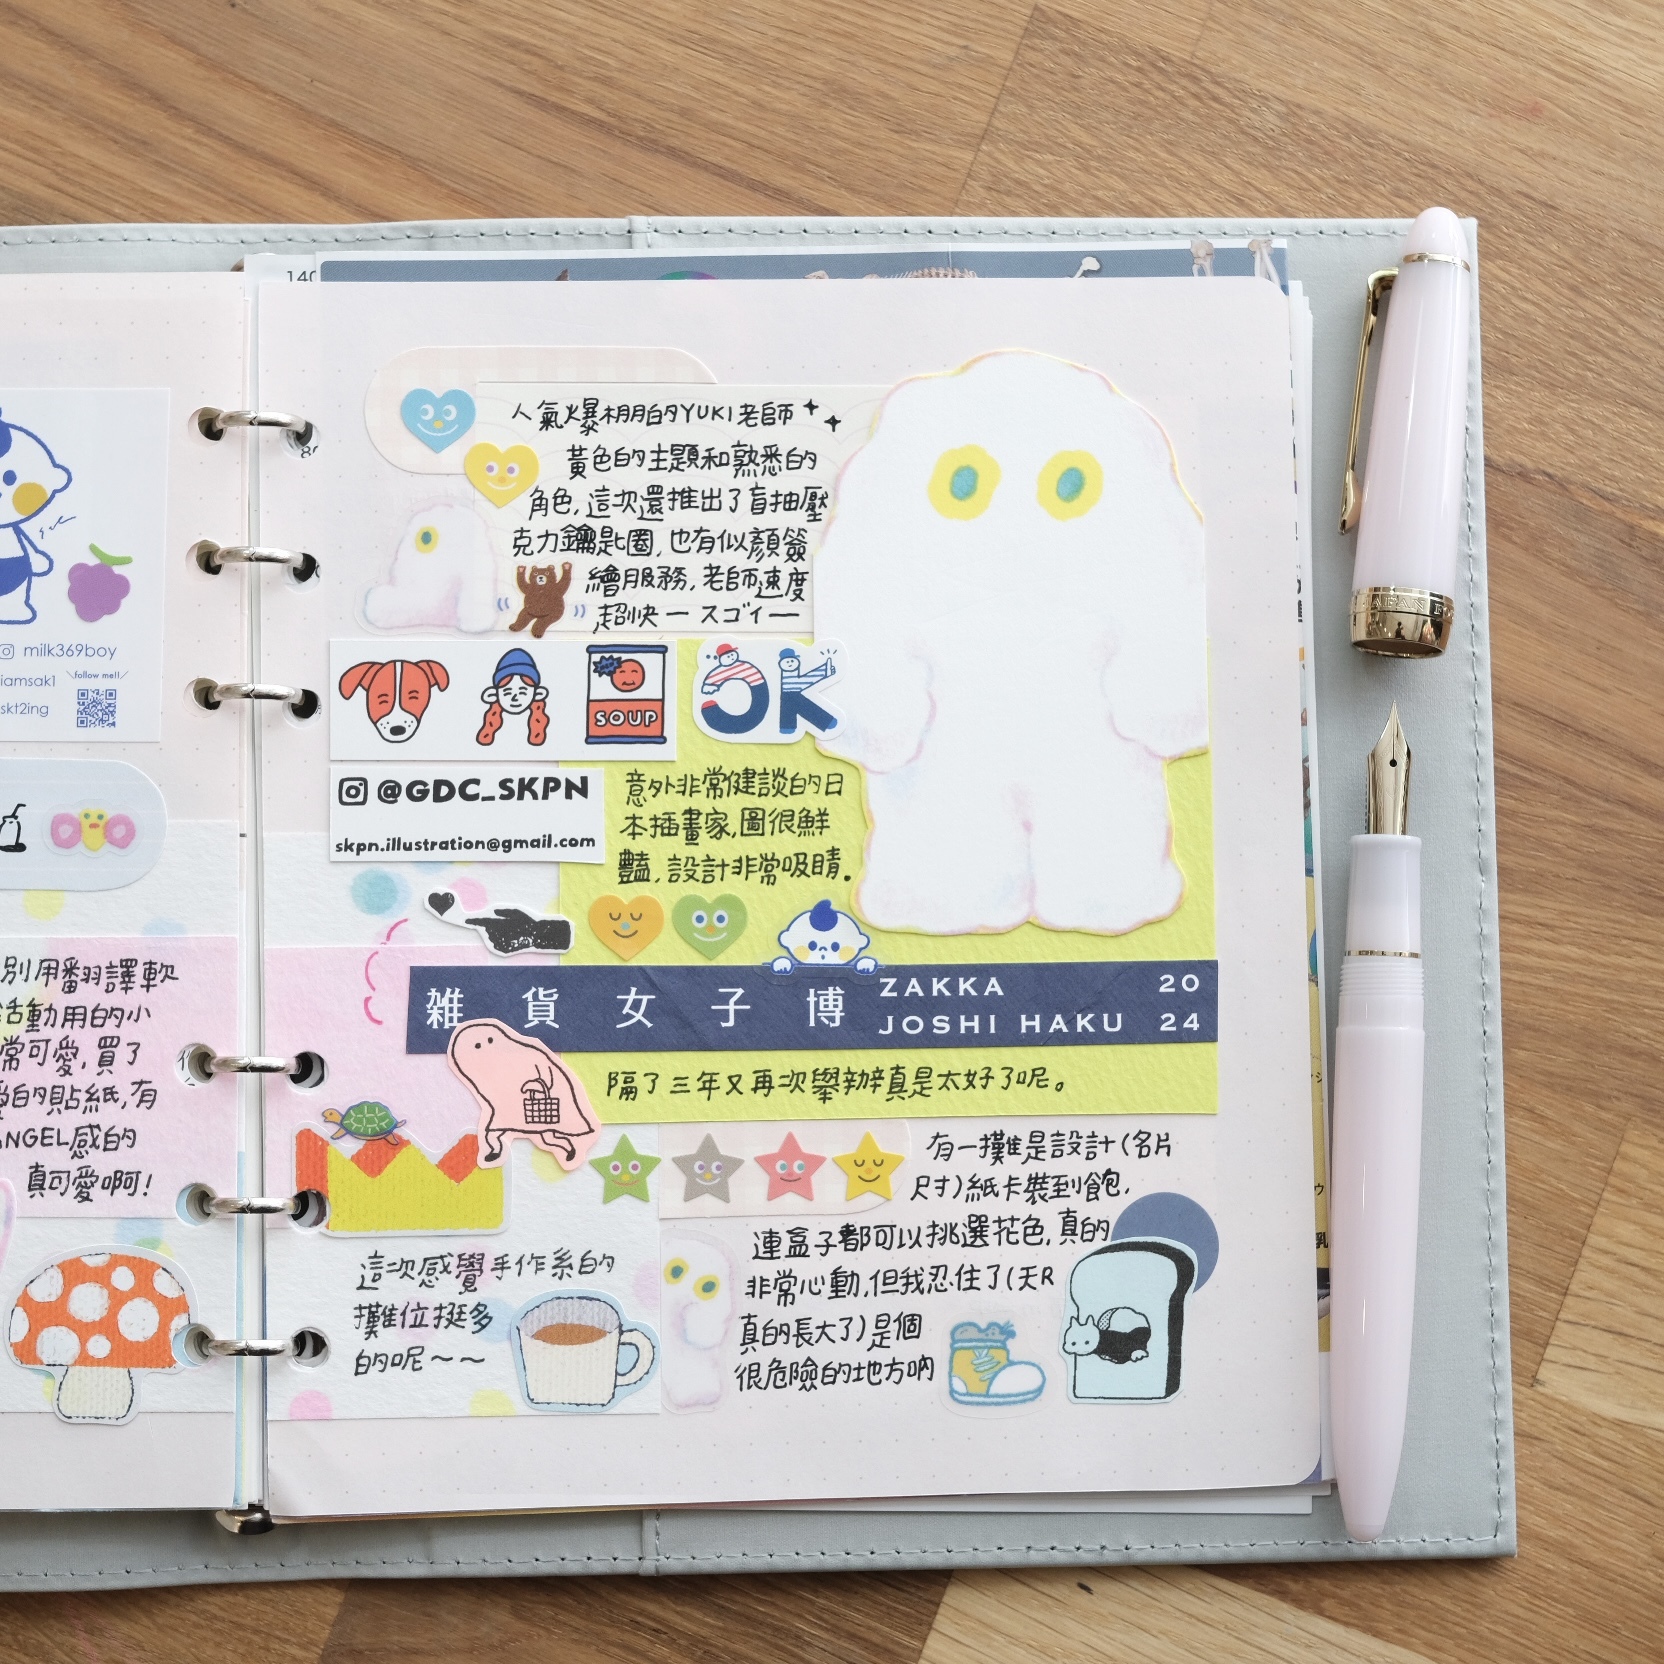 140
milk369boy
iamsak1
\follow me!!/
skt2ing
別用翻譯軟
活動用的小
常可愛,買了
愛的貼紙,有
ANGEL感的
真可愛啊!
人氣爆棚的YUKI老師
黃色的主題和熟悉的
角色,這次還推出了盲抽壓
克力鑰匙圈,也有似顏簽
繪服務,老師速度
超快ースゴイー
SOUP
OK
@GDC_SKPN
skpn.illustration@gmail.com
意外非常健談的日
本插畫家,圖很鮮
豔,設計非常吸睛.
雑貨女子博
ZAKKA
JOSHI HAKU
20
24
隔了三年又再次舉辦真是太好了呢。
有一攤是設計(名片
尺寸)紙卡裝到飽,
連盒子都可以挑選花色,真的
非常心動,但我忍住了(天R
真的長大了)是個
很危險的地方吶
這次感覺手作系的
攤位挺多
的呢~~
JAPAN